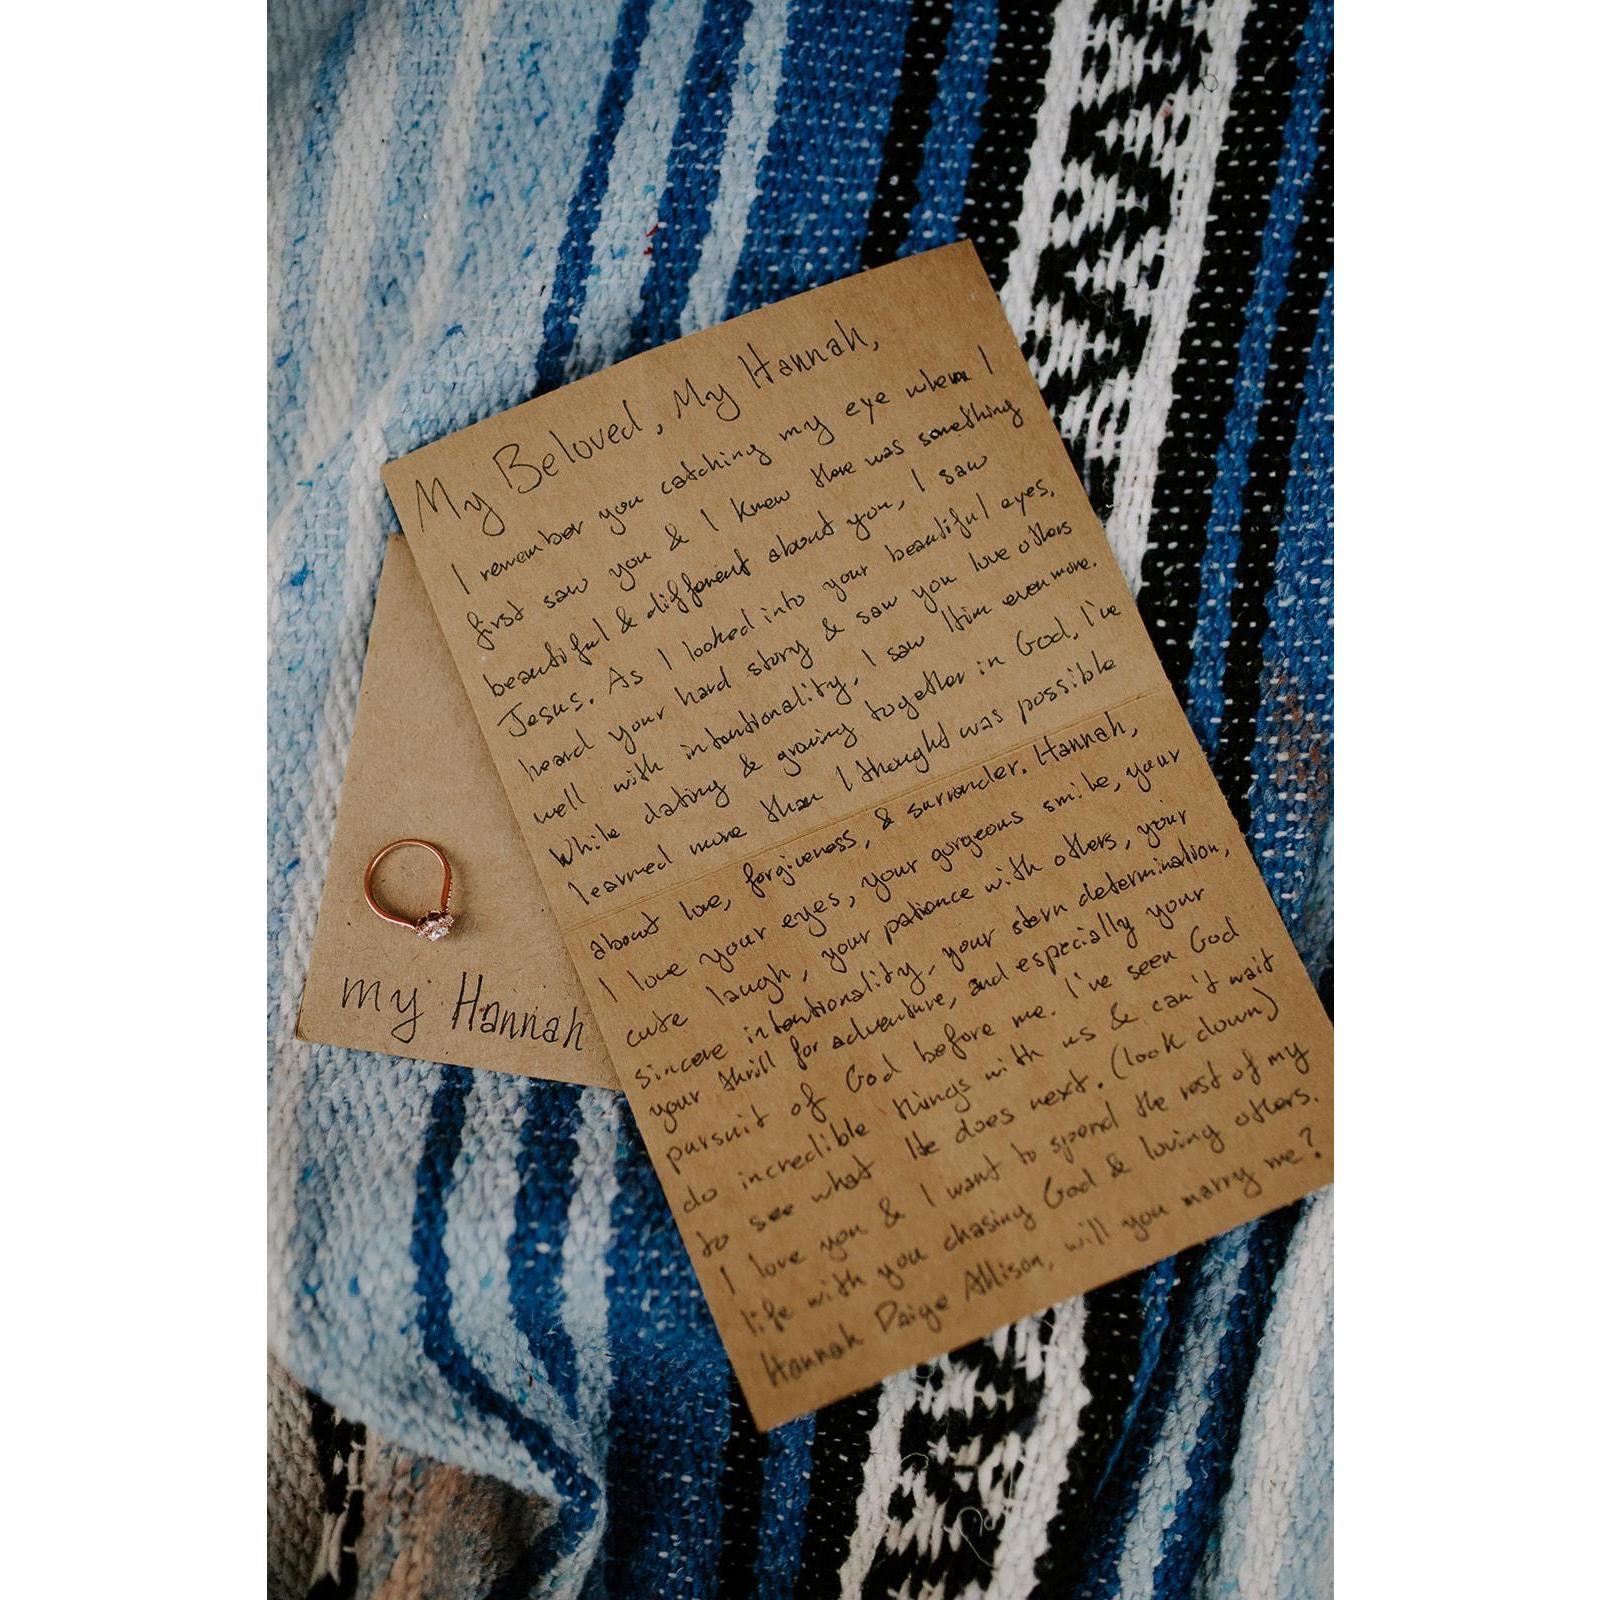 My Beloved, My Hannah,
I remember you catching my eye when I
first saw you & I knew there was something
beautiful & different about you, I saw
Jesus. As I looked into your beautiful eyes,
heard your hard story & saw you love others
well with intentionality, I saw Him even more.
While dating & growing together in God, I've
learned more than I thought was possible
about love, forgiveness, & surrender. Hannah,
I love your eyes, your gorgeous smile, your
cute laugh, your patience with others, your
sincere intentionality, your stern determination,
your thrill for adventure, and especially your
pursuit of God before me. I've seen God
do incredible things with us & can't wait
to see what He does next. (look down)
I love you & I want to spend the rest of my
life with you chasing God & loving others.
Hannah Paige Allison, will you marry me?
my Hannah